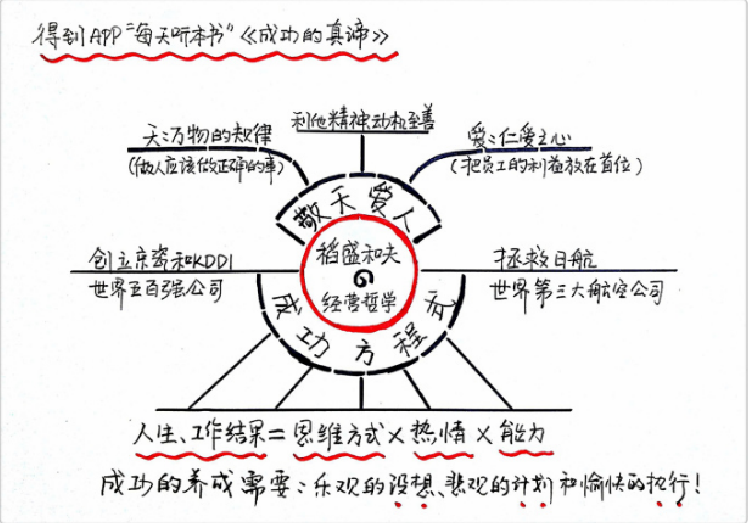 得到APP“每天听本书”《成功的真谛》
利他精神动机至善
天:万物的规律
(做人应该做正确的事)
爱:仁爱之心
(把员工的利益放在首位)
敬天爱人
稻盛和夫
の
经营哲学
创立京瓷和KDDI
世界五百强公司
拯救日航
世界第三大航空公司
成功方程式
人生、工作结果=思维方式×热情×能力
成功的养成需要:乐观的设想、悲观的计划和愉快的执行!